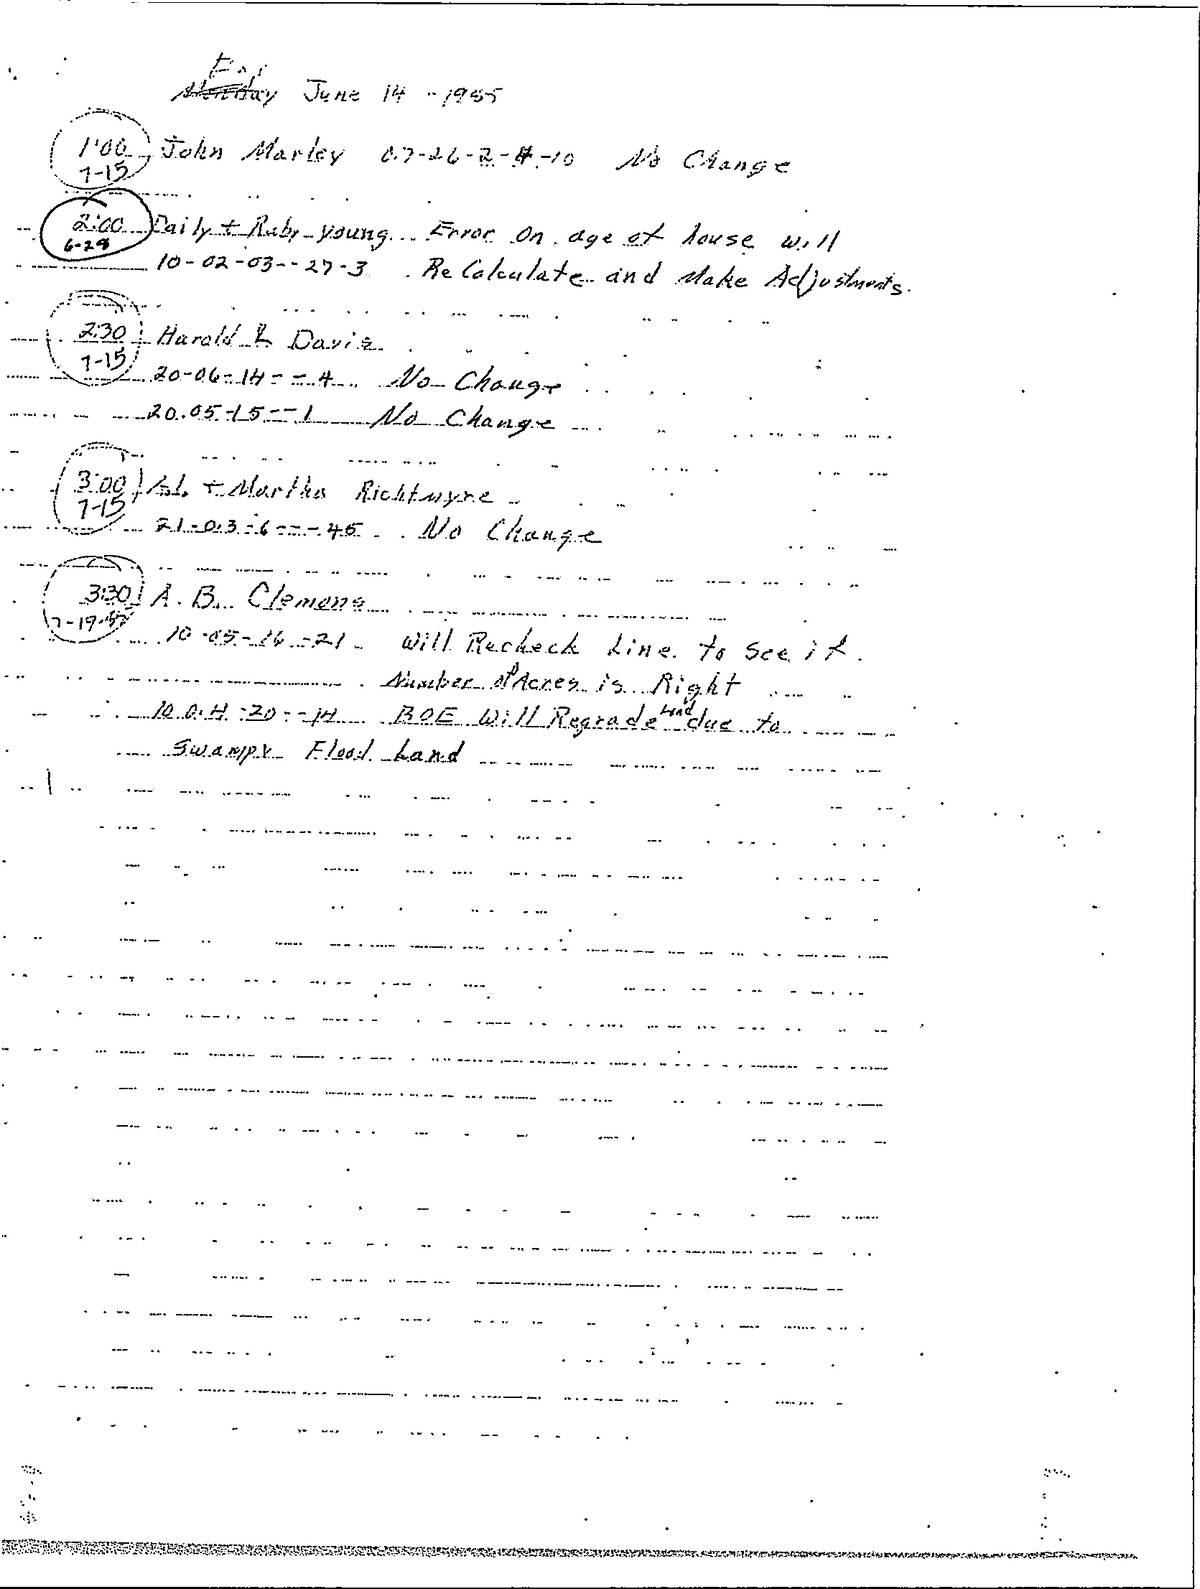 Fri
Monday June 14 - 1985
1:00 John Marley 07-26-2-4-10 No Change
7-15
2:00 Daily + Ruby young Error on age of house will
6-28
10-02-03--27-3 ReCalculate and Make Adjustments.
2:30 Harold L Davis
7-15
20-06-14--4 No Change
20-05-15--1 No Change
3:00 + Martha Richtmyre
7-15
21-03-6---45 No Change
3:30 A. B. Clemons
7-19-85
10-05-16--21 Will Recheck Line to See if
Number of Acres is Right
10-04-20--14 BOE Will Regrade Land due to
Swampy Flood Land